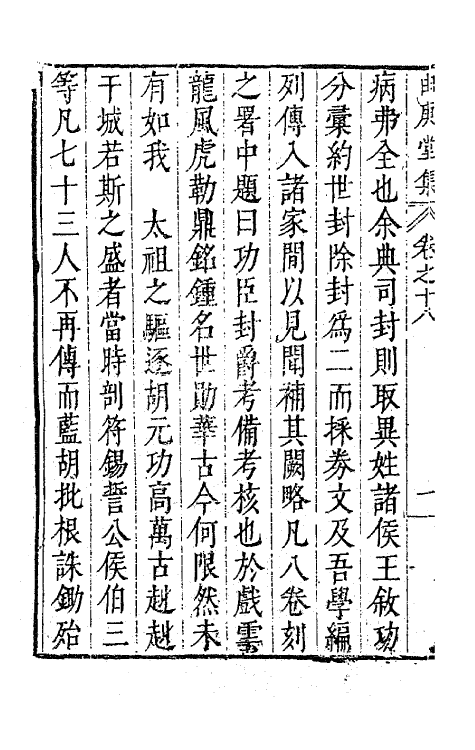 由庚堂集 卷之十八 二
病弗全也余典司封則取異姓諸侯王敘功
分彙約世封除封爲二而採券文及吾學編
列傳入諸家間以見聞補其闕略凡八卷刻
之署中題曰功臣封爵考備考核也於戲雲
龍風虎勒鼎銘鍾名世勛華古今何限然未
有如我 太祖之驅逐胡元功高萬古赳赳
干城若斯之盛者當時剖符錫誓公侯伯三
等凡七十三人不再傳而藍胡批根誅鋤殆